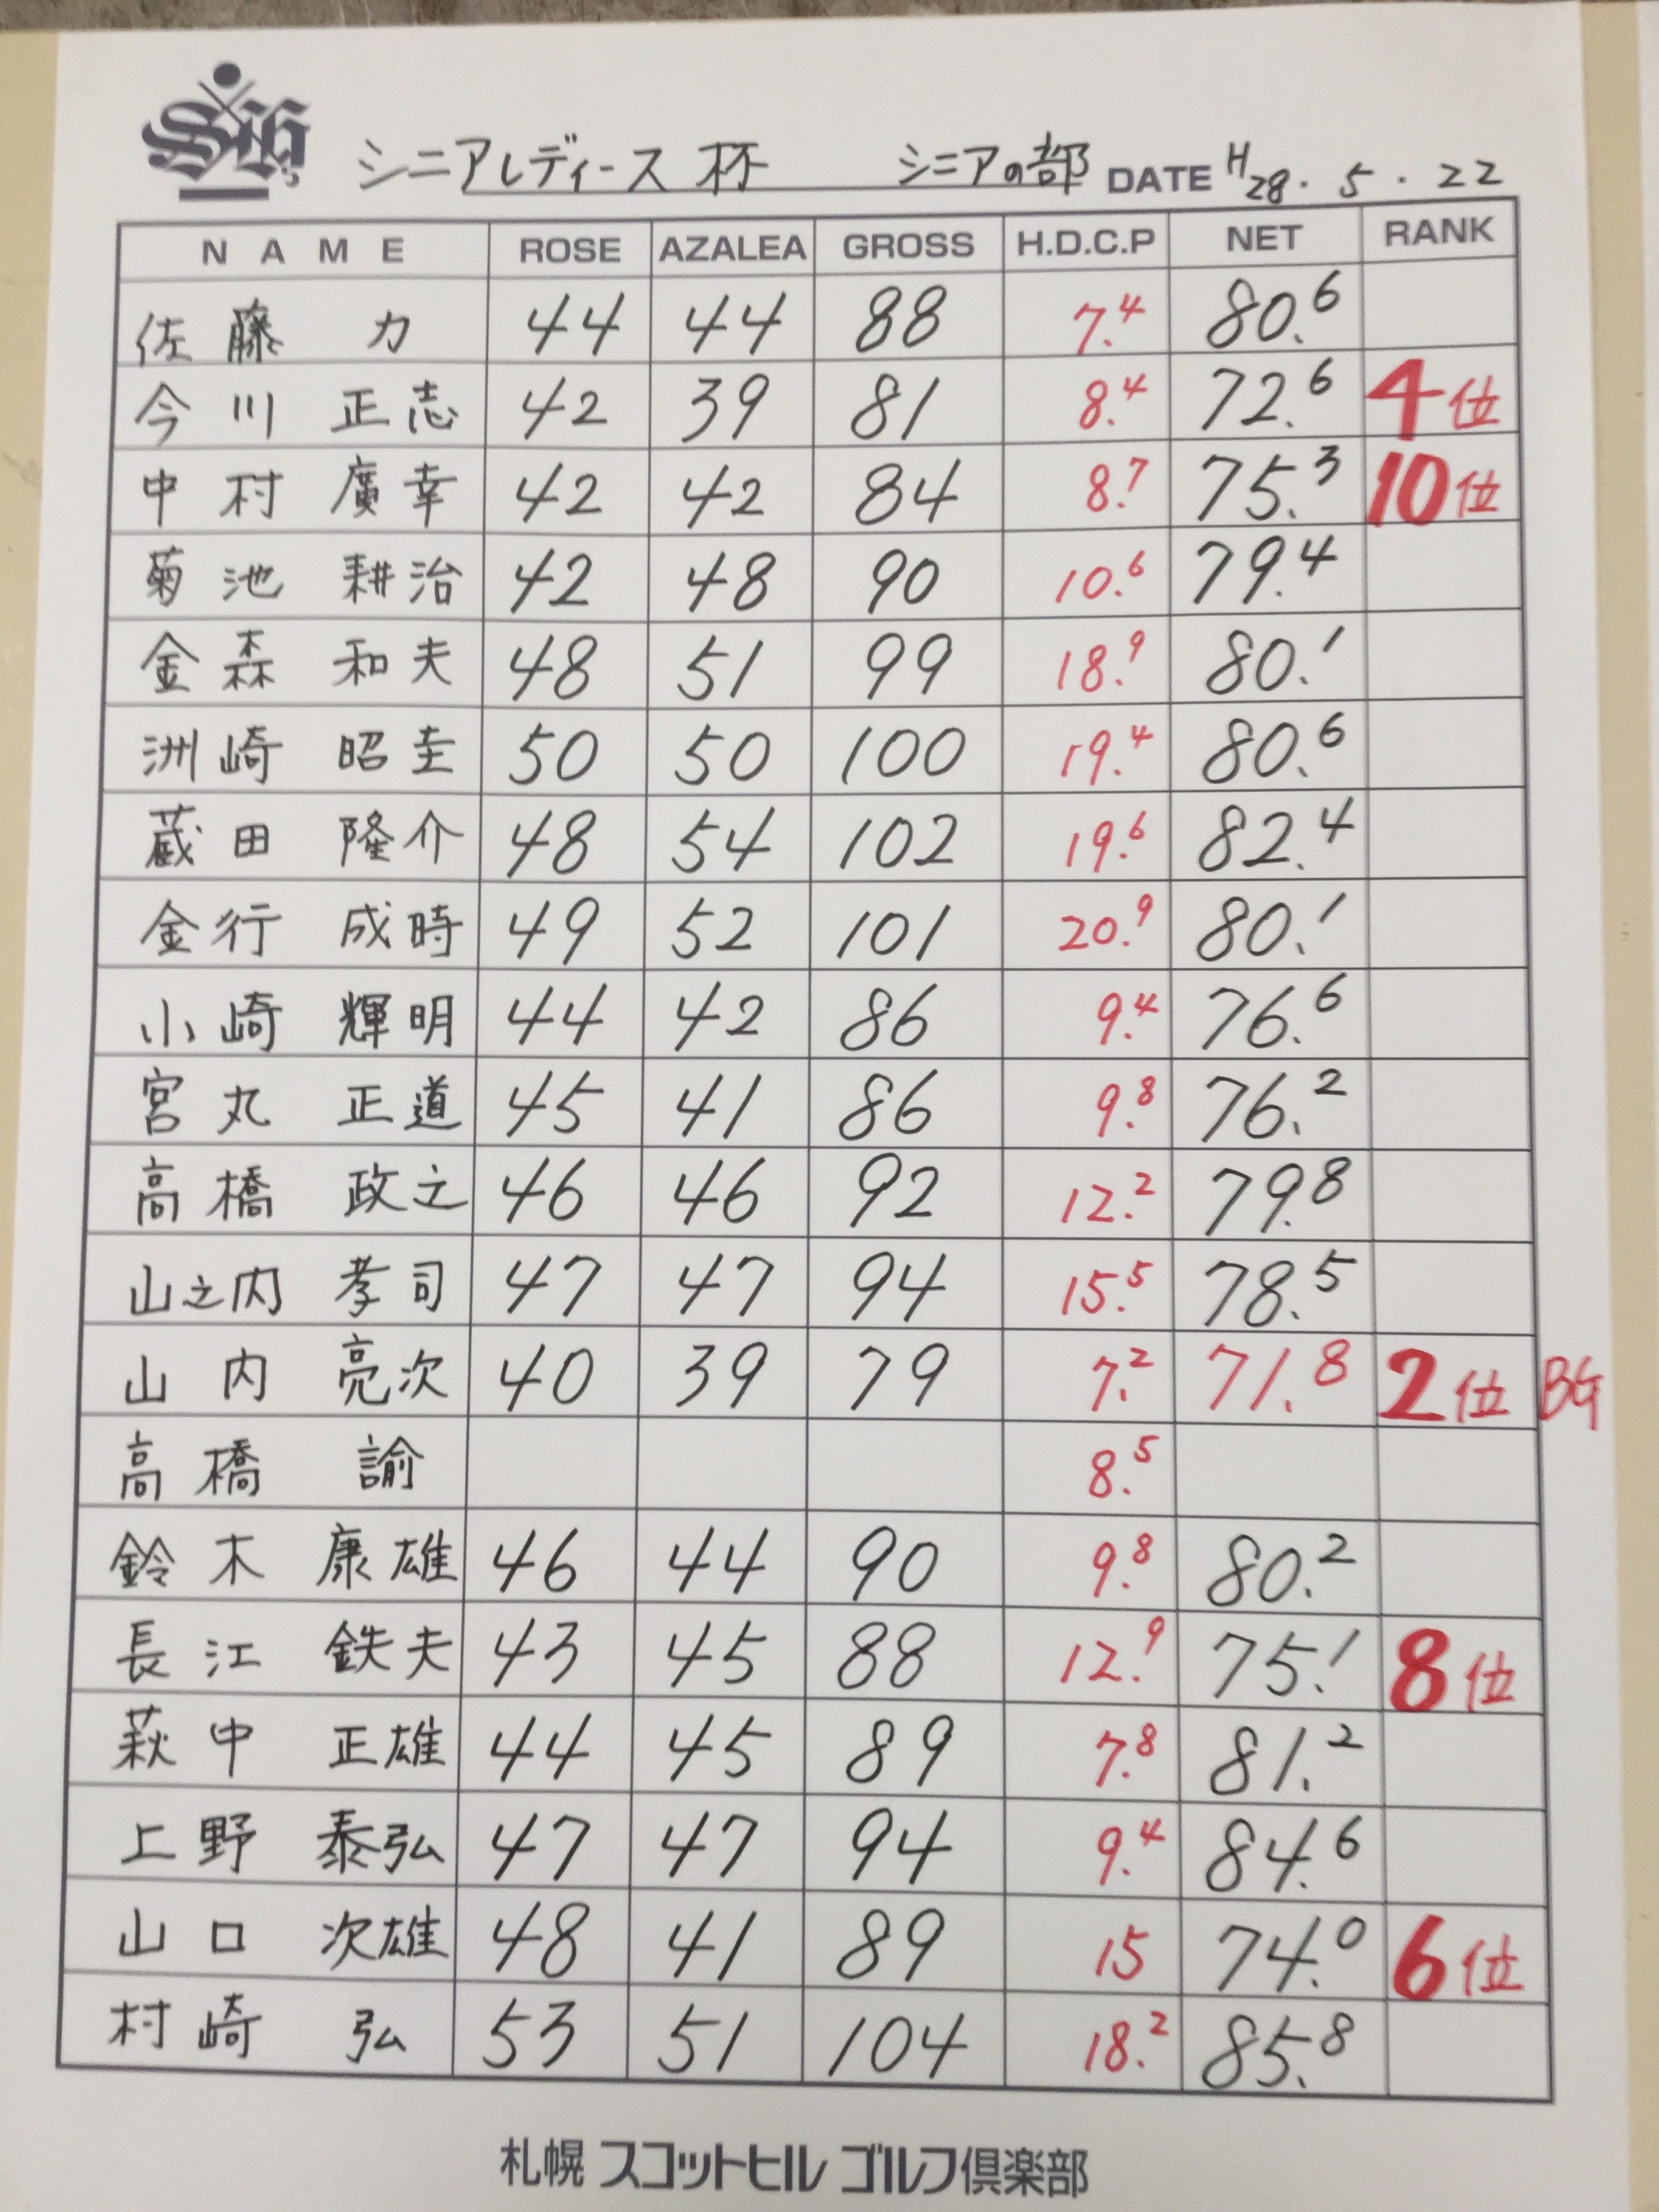 シニアレディース 杯 シニアの部 DATE H28.5.22
NAME ROSE AZALEA GROSS H.D.C.P NET RANK
佐藤 力 44 44 88 7.4 80.6
今川 正志 42 39 81 8.4 72.6 4位
中村 廣幸 42 42 84 8.7 75.3 10位
菊池 耕治 42 48 90 10.6 79.4
金森 和夫 48 51 99 18.9 80.1
洲崎 昭圭 50 50 100 19.4 80.6
蔵田 隆介 48 54 102 19.6 82.4
金行 成時 49 52 101 20.9 80.1
小崎 輝明 44 42 86 9.4 76.6
宮丸 正道 45 41 86 9.8 76.2
高橋 政之 46 46 92 12.2 79.8
山之内 孝司 47 47 94 15.5 78.5
山内 亮次 40 39 79 7.2 71.8 2位 BG
高橋 諭 8.5
鈴木 康雄 46 44 90 9.8 80.2
長江 鉄夫 43 45 88 12.9 75.1 8位
萩中 正雄 44 45 89 7.8 81.2
上野 泰弘 47 47 94 9.4 84.6
山口 次雄 48 41 89 15 74.0 6位
村崎 弘 53 51 104 18.2 85.8
札幌 スコットヒル ゴルフ倶楽部